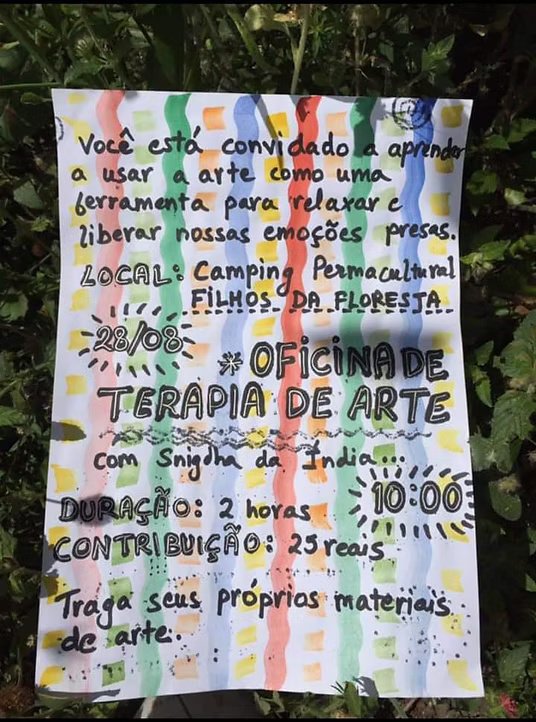 Você está convidado a aprender
a usar a arte como uma
ferramenta para relaxar e
liberar nossas emoções presas.
LOCAL: Camping Permacultural
FILHOS DA FLORESTA
28/08
* OFICINA DE
TERAPIA DE ARTE
com Snigdha da Índia...
10:00
DURAÇÃO: 2 horas
CONTRIBUIÇÃO: 25 reais
Traga seus próprios materiais
de arte.